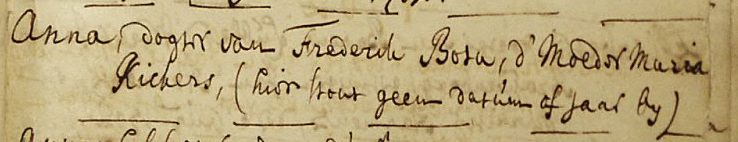 Anna, dogter van Frederik Botu, d' Moeder Maria
Kickers, (hier staat geen datúm of jaar by)